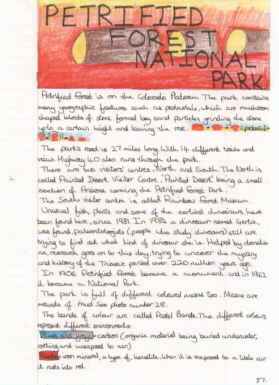 PETRIFIED
FOREST
NATIONAL
PARK
Petrified Forest is on the Colorado Plateau. The park contains
many geographic features such as pedestals, which are mushroom
shaped blocks of stone formed by sand particles grinding the stone
up to a certain height and leaving the rest.
The parks road is 27 miles long With 14 different trails and
view Highway 40 also runs through the park.
There are two visitors centres, North and South. The North is
called Painted Desert Visitor Centre, Painted Desert being a small
section of Arizona running the Petrified Forest Park.
The South visitor centre is called Rainbow Forest Museum
Unusual fish, plants and some of the earliest dinosaurs have
been found here since 1981. In 1982 a dinosaur named Gertie,
was found, palaeontologists (people who study dinosaurs) still are
trying to find out what kind of dinosaur she is. Helped by donate
ns, research goes on to this day, trying to uncover the mystery
and history of the Triassic period over 220 million years ago.
In 1906 Petrified Forest became a monument and in 1962
it became a National Park.
The park is full of different coloured muds too. Means are
mounds of mud. See photo number 28.
The bands of colour are called Pastel Bands. The different colours
represent different environments
Blues and greys carbon (organic material being buried underwater,
rotting and exposed to air)
Reds iron mineral, a type of hematite. When it is exposed to a little air
it rusts into red.